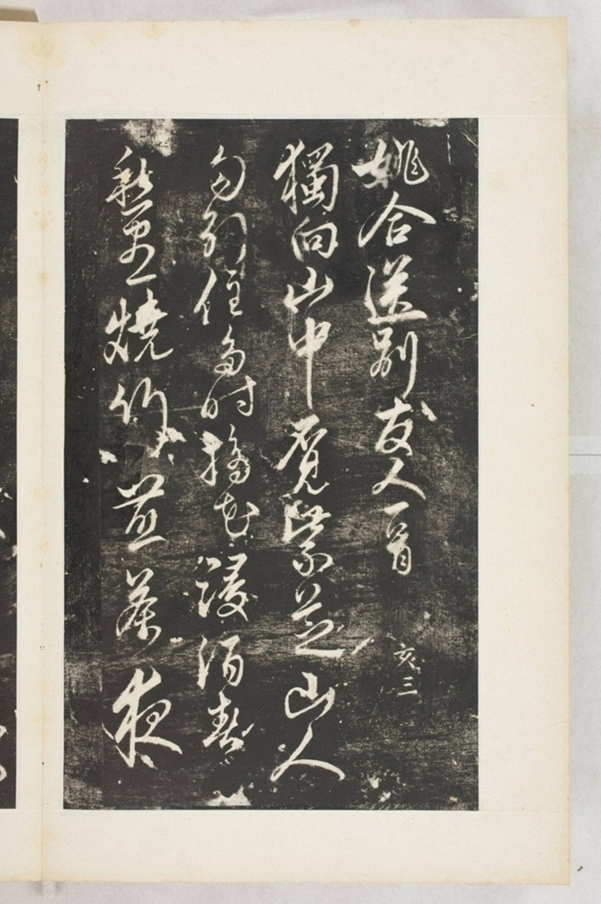 姚合送別友人一首
亥三
獨向山中覓紫芝山人
勾引住多時摘花浸酒春
愁盡燒竹煎茶夜